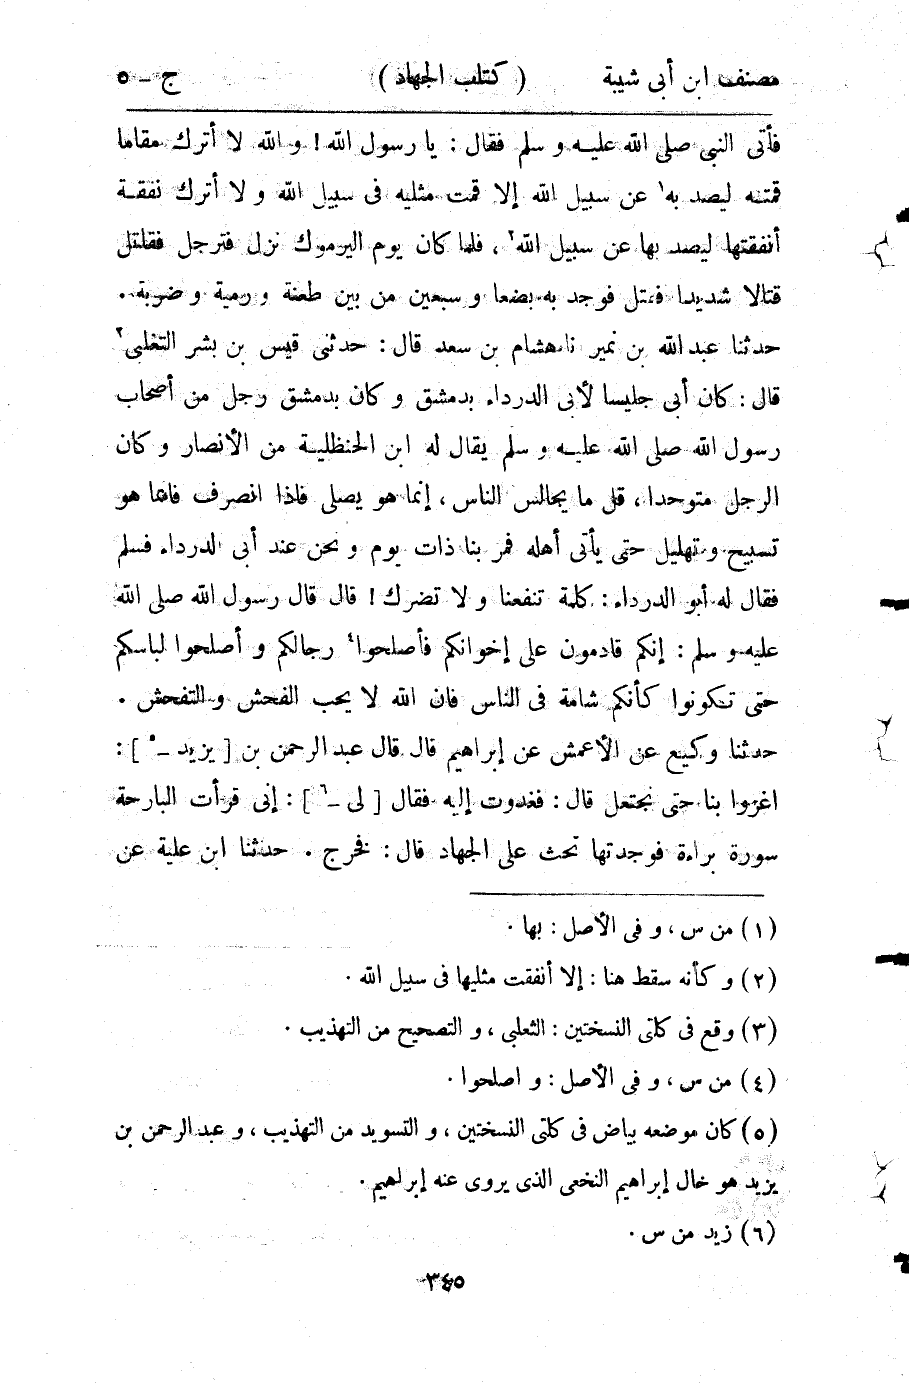 مصنف ابن أبى شيبة ( كتاب الجهاد ) ج ـ ٥
فأتى النبى صلى الله عليه و سلم فقال : يا رسول الله ! و الله لا أترك مقاما
قمتنه ليصد به١ عن سبيل الله إلا قمت مثليه فى سبيل الله و لا أترك نفقة
أنفقتها ليصد بها عن سبيل الله٢ ، فلما كان يوم اليرموك نزل فترجل فقاتل
قتالا شديدا فقتل فوجد به بضعا و سبعين من بين طعنة و رمية و ضربة .
حدثنا عبد الله بن نمير نا هشام بن سعد قال : حدثنى قيس بن بشر التغلبى٣
قال : كان أبى جليسا لأبى الدرداء بدمشق و كان بدمشق رجل من أصحاب
رسول الله صلى الله عليه و سلم يقال له ابن الحنظلية من الأنصار و كان
الرجل متوحدا ، قل ما يجالس الناس ، إنما هو يصلى فاذا انصرف فانما هو
تسبيح و تهليل حتى يأتى أهله فمر بنا ذات يوم و نحن عند أبى الدرداء فسلم
فقال له أبو الدرداء : كلمة تنفعنا و لا تضرك ! قال قال رسول الله صلى الله
عليه و سلم : إنكم قادمون على إخوانكم فأصلحوا٤ رجالكم و أصلحوا لباسكم
حتى تكونوا كأنكم شامة فى الناس فان الله لا يحب الفحش و التفحش .
حدثنا وكيع عن الأعمش عن إبراهيم قال قال عبد الرحمن بن [ يزيد ـ٥ ] :
اغزوا بنا حتى نجتعل قال : فغدوت إليه فقال [ لى ـ٦ ] : إنى قرأت البارحة
سورة براءة فوجدتها تحث على الجهاد قال : فخرج . حدثنا ابن علية عن
(١) من س ، و فى الأصل : بها .
(٢) و كأنه سقط هنا : إلا أنفقت مثليها فى سبيل الله .
(٣) وقع فى كلتى النسختين : الثعلبى ، و التصحيح من التهذيب .
(٤) من س ، و فى الأصل : و اصلحوا .
(٥) كان موضعه بياض فى كلتى النسختين ، و التسويد من التهذيب ، و عبد الرحمن بن
يزيد هو خال إبراهيم النخعى الذى يروى عنه إبراهيم .
(٦) زيد من س .
٣٤٥